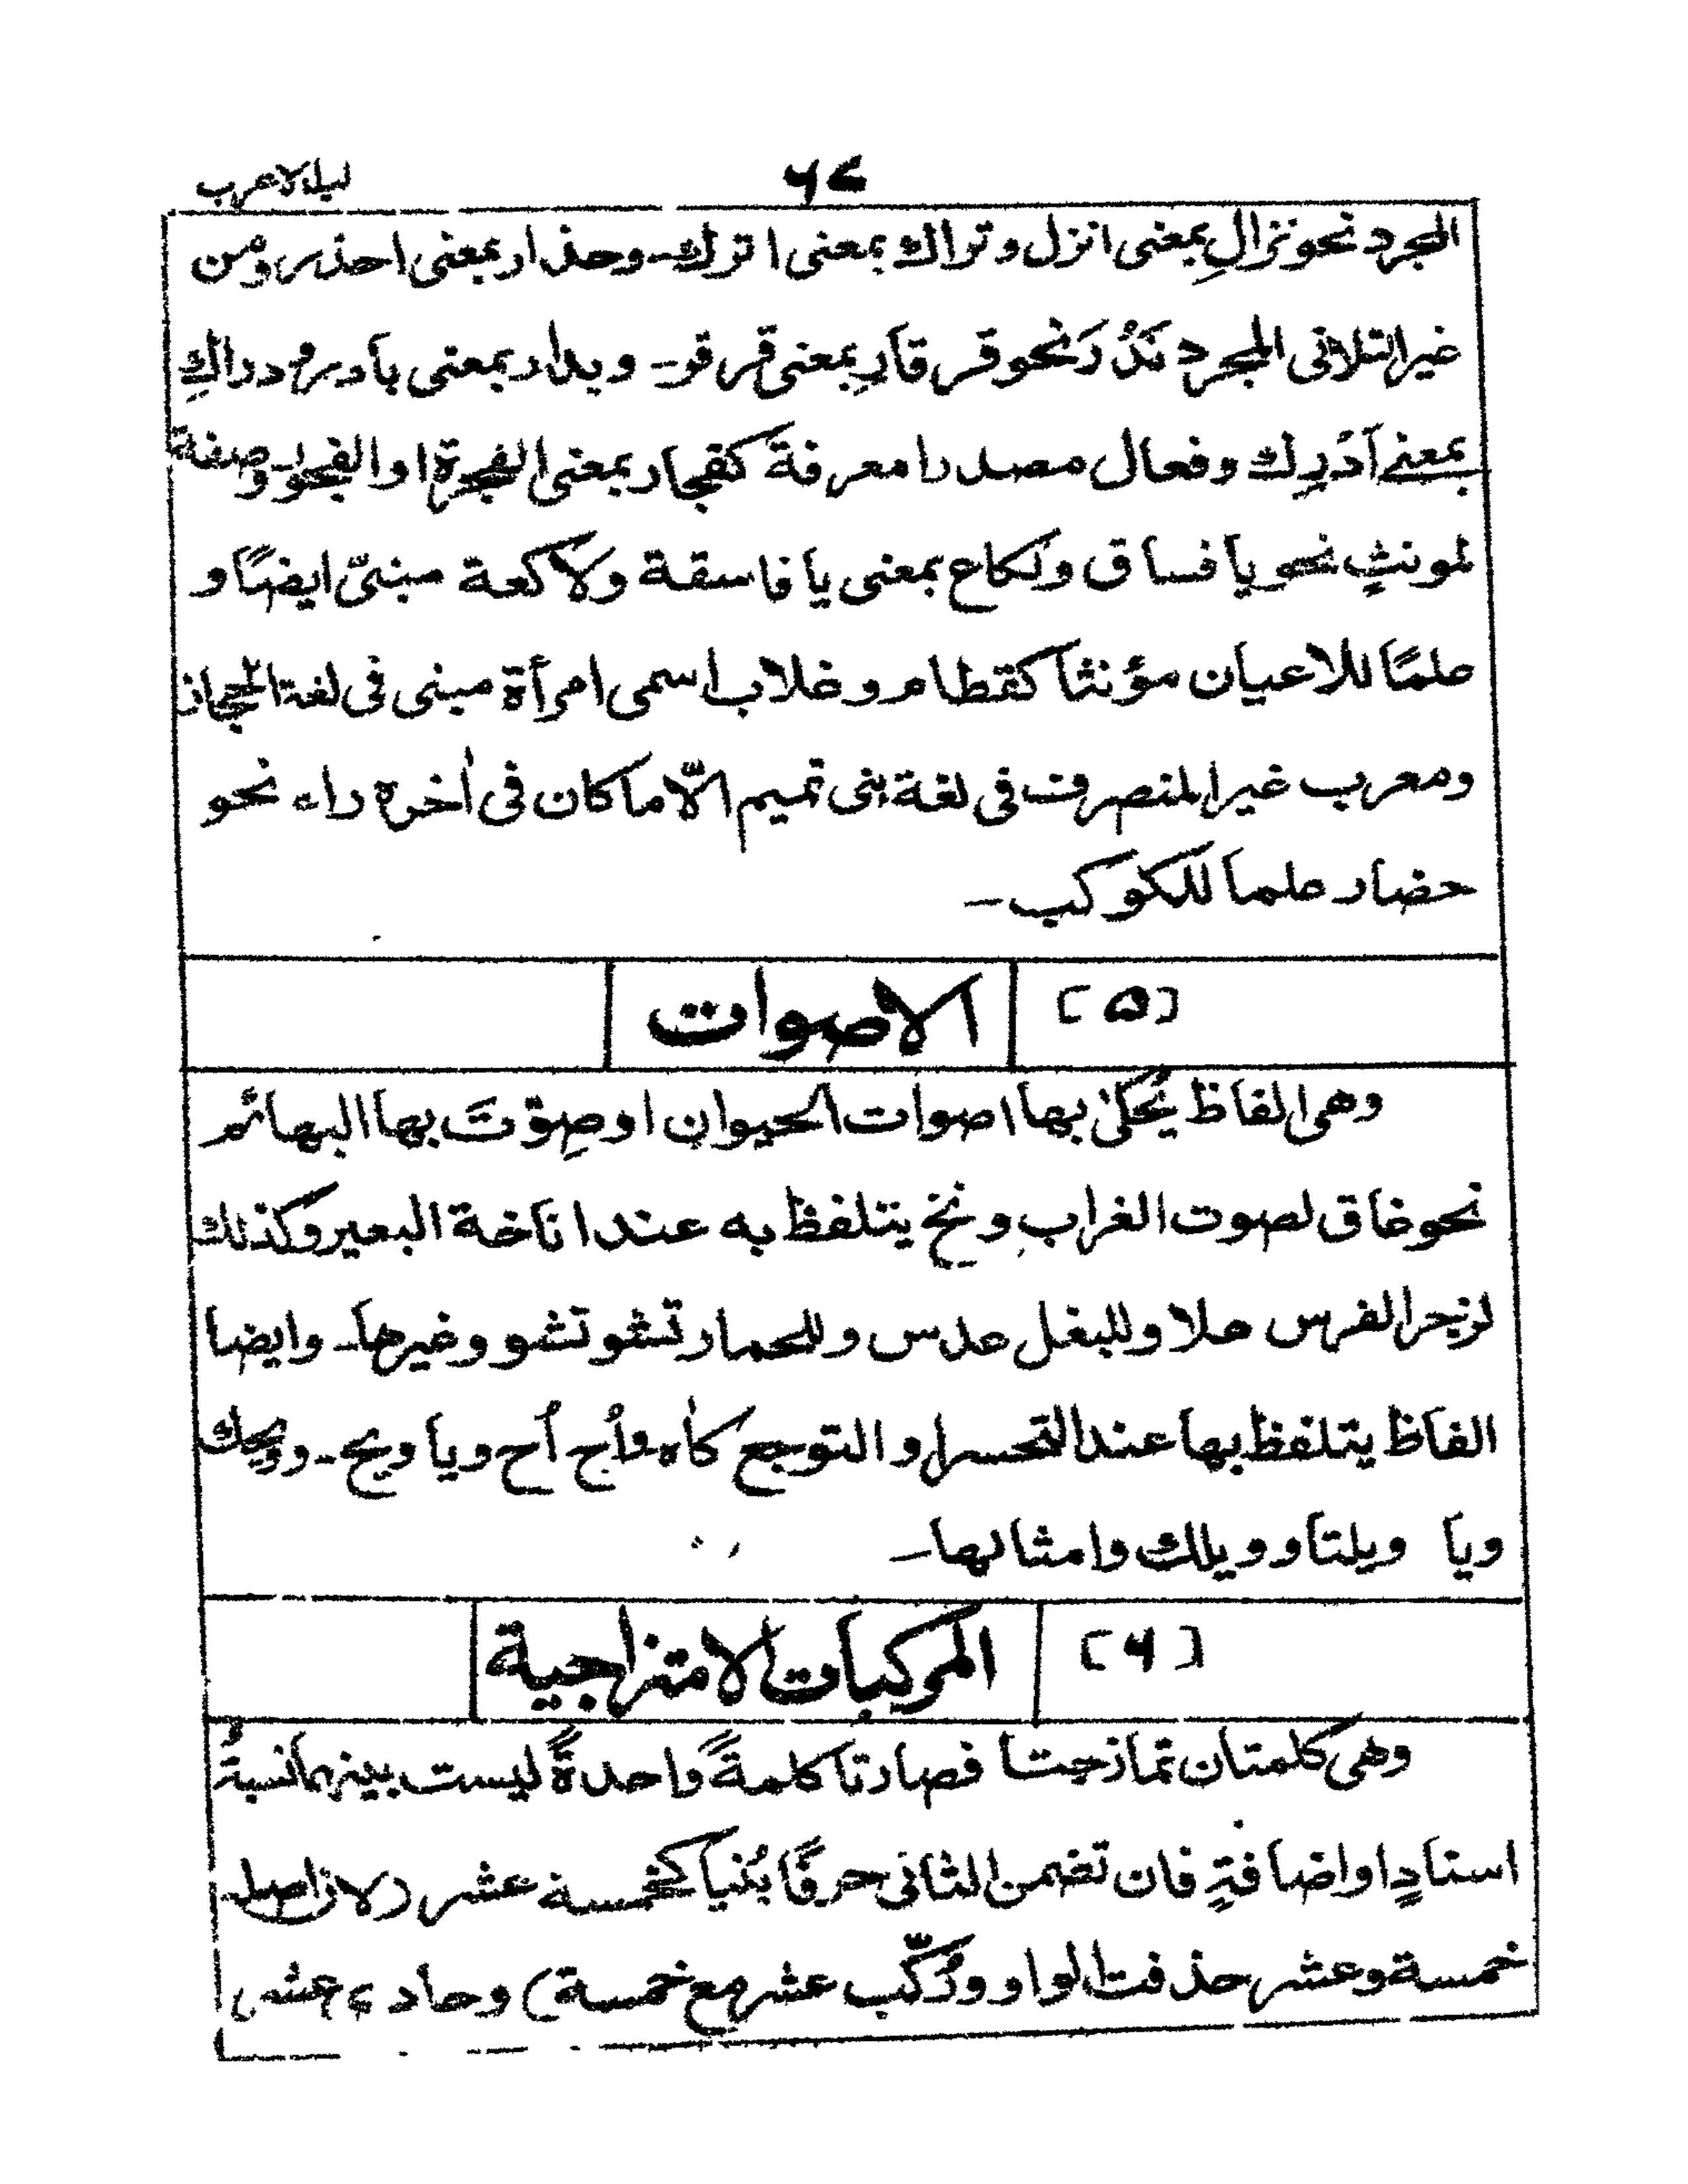 ۶۷
المجرد نحو نزالِ بمعنى انزل وتراك بمعنى اترك۔ وحذار بمعنى احذر ومن
غير الثلاثى المجرد نَدُرَ نحو قرقارِ بمعنى قرقر۔ وبدار بمعنى بادر ودراكِ
بمعنى اَدْرِك وفعال مصدرا معرفة كفجار بمعنى الفجرة او الفجور وصفة
لمونثٍ نحو يا فساق ولكاع بمعنى يا فاسقة ولاكعة مبنىّ ايضًا و
علمًا للاعيان مؤنثا كقطام وغلاب اسمى امرأة مبنى فى لغة الحجاز
ومعرب غير المنصرف فى لغة بنى تميم الّا ما كان فى اٰخره راء نحو
حضار علما للكوكب۔
[۵] الاصوات
وهى الفاظ يُحكىٰ بها اصوات الحيوان او صِوّتَ بها البهائم
نحو غاق لصوت الغراب ونخ يتلفظ به عند اناخة البعير وكذلك
لزجر الفرس هلا وللبغل عدس وللحمار تشو تشو وغيرها۔ وايضا
الفاظ يتلفظ بها عند التحسر او التوجع كاٰه واُح اُح ويا ويح۔ وويحك
ويا ويلتا وويلك وامثالها۔
[۶] المركبات الامتزاجية
وهى كلمتان تمازجتا فصارتا كلمةً واحدةً ليست بينهما نسبةُ
اسنادٍ او اضافةٍ فان تضمن الثانى حرفًا بُنيا كخمسة عشر (لان اصله
خمسة وعشر حذفت الواو ورُكّب عشر مع خمسة) وحادى عشر